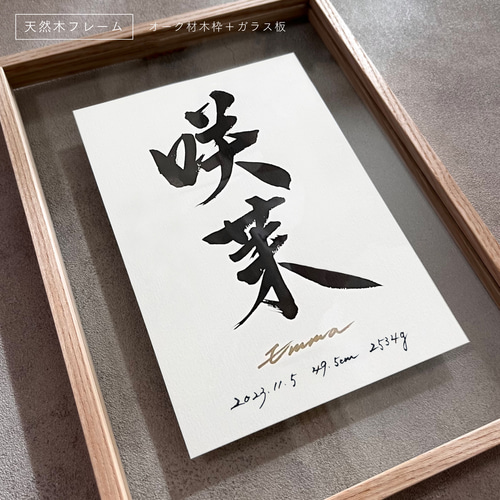 天然木フレーム
オーク材木枠＋ガラス板
咲茉
Emma
2023.11.5 49.5cm 2534g